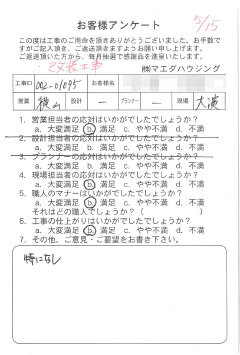 お客様アンケート
5/15
この度は工事のご用命を頂きありがとうございました。お手数で
すがご記入頂き、ご返送頂きますようお願い申し上げます。
ご返送いただいた方から、毎月抽選で感謝品を進呈いたします。
㈱マエダハウジング
工事ID 002-010895 お客様名
営業 横山 設計 ー プランナー ー 現場 大濱
1. 営業担当者の応対はいかがでしたでしょうか?
a. 大変満足 b. 満足 c. やや不満 d. 不満
2. 設計担当者の応対はいかがでしたでしょうか?
a. 大変満足 b. 満足 c. やや不満 d. 不満
3. プランナーの応対はいかがでしたでしょうか?
a. 大変満足 b. 満足 c. やや不満 d. 不満
4. 現場担当者の応対はいかがでしたでしょうか?
a. 大変満足 b. 満足 c. やや不満 d. 不満
5. 職人のマナーはいかがでしたでしょうか?
a. 大変満足 b. 満足 c. やや不満 d. 不満
それはどの職人でしょうか?( )
6. 工事の仕上がりはいかがでしたでしょうか?
a. 大変満足 b. 満足 c. やや不満 d. 不満
7. その他、ご意見・ご要望をお書き下さい。
特になし